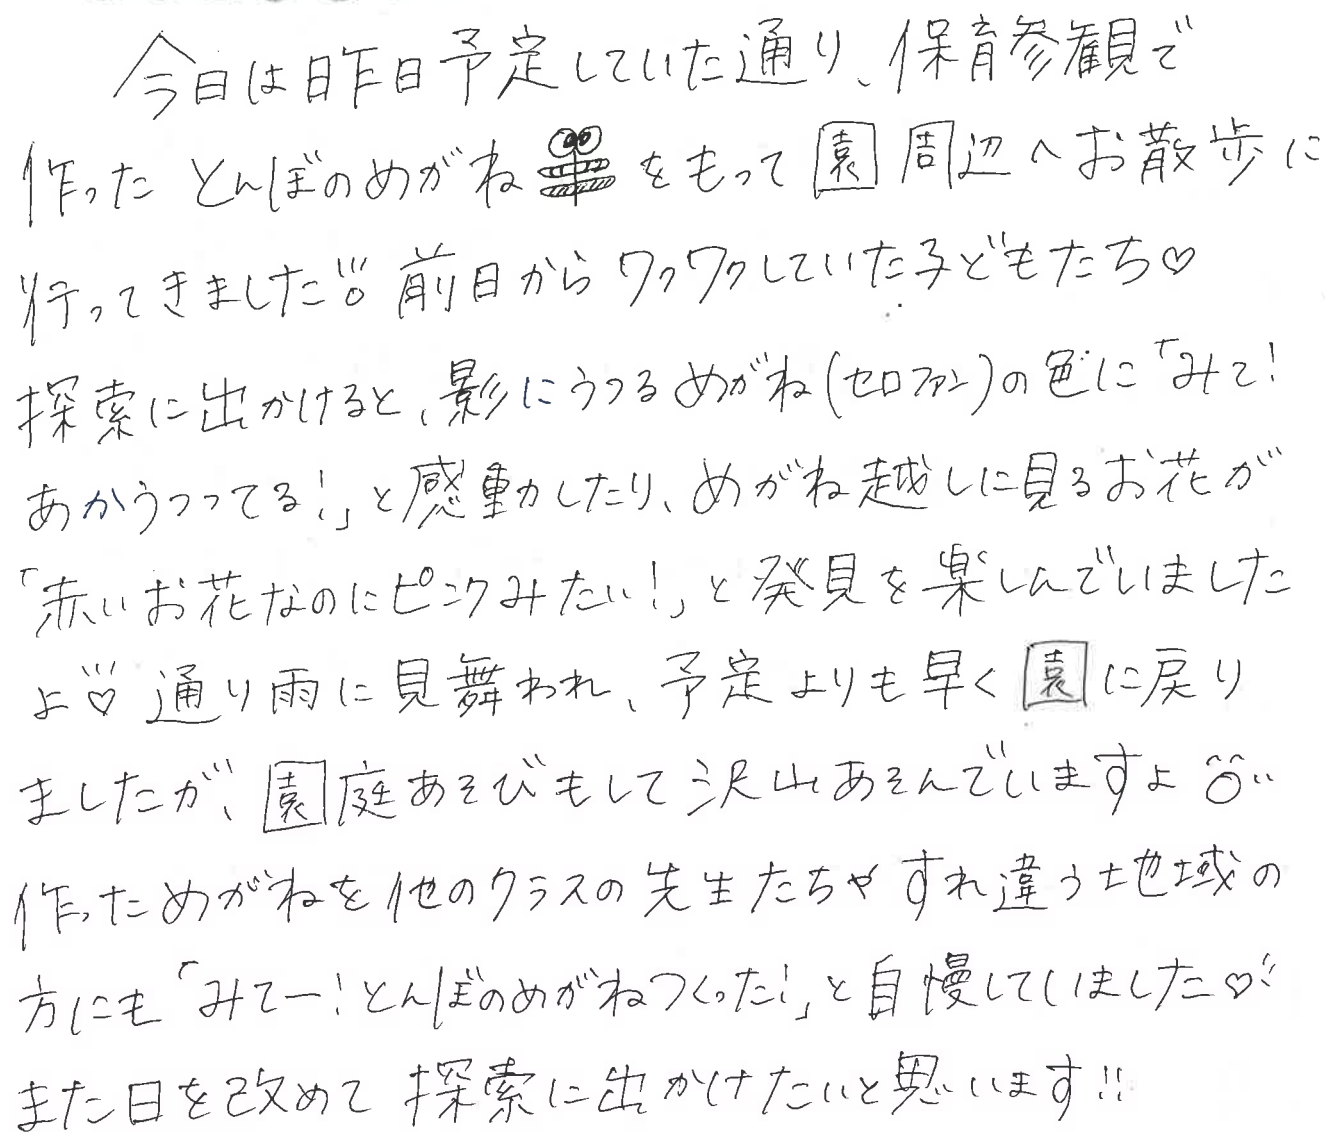 今日は昨日予定していた通り、保育参観で
作ったとんぼのめがねをもって園周辺へお散歩に
行ってきました!!。前日からワクワクしていた子どもたち♡
探索に出かけると、影にうつるめがね(セロファン)の色に「みて!
あかうつってる!」と感動したり、めがね越しに見るお花が
「赤いお花なのにピンクみたい!」と発見を楽しんでいました
よ♡通り雨に見舞われ、予定よりも早く園に戻り
ましたが、園庭あそびもして沢山あそんでいますよ
作っためがねを他のクラスの先生たちやすれ違う地域の
方にも「みてー!とんぼのめがねつくった!」と自慢していました♡
また日を改めて探索に出かけたいと思います!!